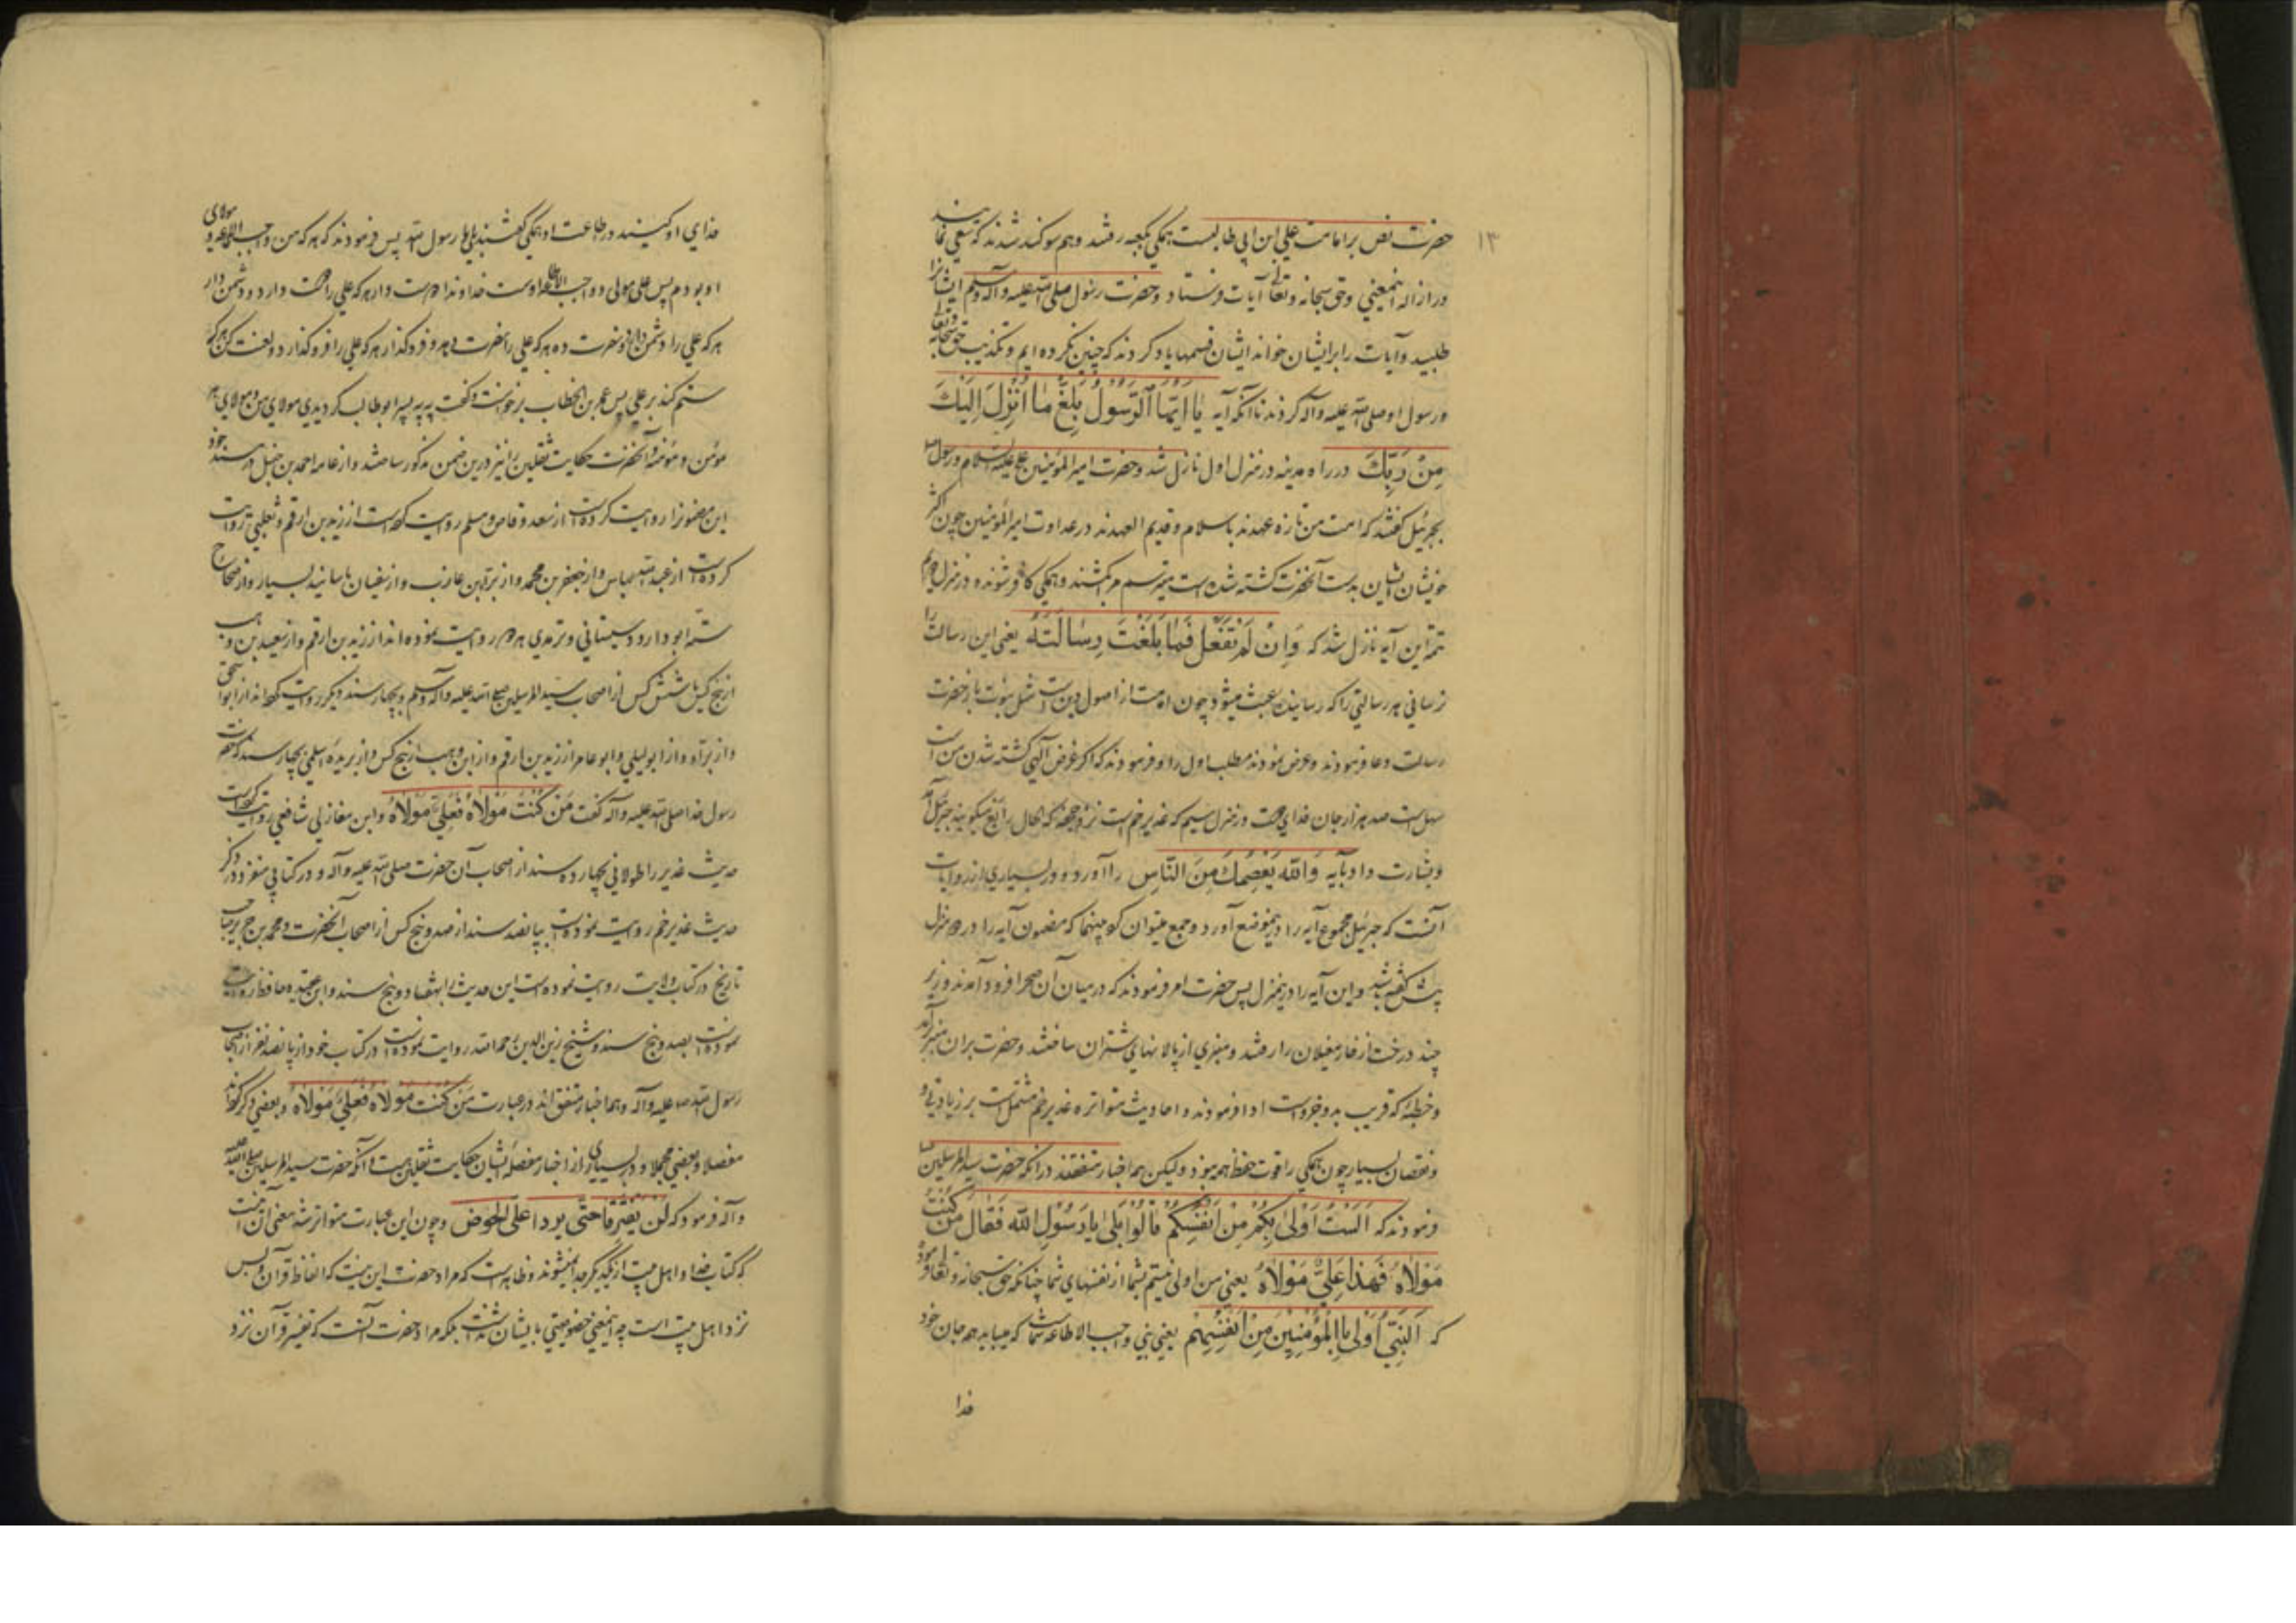 ۱۳
حضرت نص بر امامت علی ابن ابی طالبست همکی بکعبه رفتند و هم سوکند شدند که سعی نمایند
در ازاله اینمعنی و حق سبحانه و تعالی آیات فرستاد و حضرت رسول صلی الله علیه و آله و سلم ایشانرا
طلبید و آیات را برایشان خواند ایشان قسمها یاد کردند که چنین نکرده ایم و تکذیب حق سبحانه و تعالی
و رسول او صلی الله علیه و آله کردند تا آنکه آیه یٰا اَیُّهَا الرَّسُولُ بَلِّغْ مٰا اُنْزِلَ اِلَیْكَ
مِنْ رَبِّكَ در راه مدینه در منزل اول نازل شد و حضرت امیر المؤمنین علی علیه السلام و رسول
بجبرئیل کفتند که امت من تازه عهدند باسلام و قدیم العهدند در عداوت امیر المؤمنین چون اکثر
خویشان ایشان بدست آنحضرت کشته شده است میترسم مرا بکشند و همکی کافر شوند و در منزل دویم
تتمه این آیه نازل شد که وَاِنْ لَمْ تَفْعَلْ فَمٰا بَلَّغْتَ رِسٰالَتَهُ یعنی این رسالت را
نرسانی هر رسالتی را که رسانیدهٔ عبث میشود چون امامت از اصول دین است مثل نبوت باز حضرت
رسالت دعا فرمودند و عرض نمودند مطلب اول را و فرمودند که اکر غرض الهی کشته شدن من است
سهل است صد هزار جان فدای تست در منزل سیم که غدیر خم است نزد جحفه که الحال رابغ میکویند جبرئیل آمد
و بشارت داد بآیه وَاللّٰهُ یَعْصِمُكَ مِنَ النّٰاسِ را آورد و در بسیاری از روایات
آنست که جبرئیل مجموع آیه را در اینموضع آورد و جمع میتوان کرد باینها که مضمون آیه را در دو منزل
پیش کفته باشد و این آیه را در اینمنزل پس حضرت امر فرمودند که در میان آن صحرا فرود آمدند و زیر
چند درخت از خار مغیلان را رفتند و منبری از پالانهای شتران ساختند و حضرت بران منبر برآمد
و خطبهٔ که قریب بدو جزو است ادا فرمودند و احادیث متواتره غدیر خم مشتمل است بر زیادتی و
و نقصان بسیار چون همکی را قوت حفظ همه نبود ولیکن همه اخبار متفقند در آنکه حضرت سید المرسلین
فرمودند که اَلَسْتُ اَوْلیٰ بِکُمْ مِنْ اَنْفُسِکُمْ قٰالُوا بَلیٰ یٰا رَسُولَ اللّٰهِ فَقٰالَ مَنْ کُنْتُ
مَوْلاٰهُ فَهٰذٰا عَلِیٌّ مَوْلاٰهُ یعنی من اولی نیستم بشما از نفسهای شما چنانکه حق سبحانه و تعالی فرموده
که اَلنَّبِیُّ اَوْلیٰ بِالْمُؤْمِنِینَ مِنْ اَنْفُسِهِمْ یعنی نبی واجب الاطاعه شماست که میباید همه جان خود
فدا
فدای او کنند در اطاعت او همکی کفتند بلی یا رسول الله پس فرمودند که هر که من واجب الاطاعه و مولای
او بودم پس علی مولی و واجب الاطاعه اوست خداوندا دوست دار هر که علی را دوست دارد و دشمن دار
هر که علی را دشمن دارد و نصرت ده هر که علی را نصرت دهد و فروکذار هر که علی را فروکذارد و لعنت کن هر که
ستم کند بر علی پس عمر بن الخطاب برخواست و کفت به به پسر ابوطالب کردیدی مولای من و مولای هر
مؤمن و مؤمنه و آنحضرت حکایت ثقلین را نیز درین ضمن مذکور ساختند و از عامه احمد بن حنبل در مسند خود
این مضمونرا روایت کرده است از سعد وقاص و مسلم روایت کرده است از زید بن ارقم و ثعلبی روایت
کرده است از عبد الله عباس و از جعفر بن محمد و از براء بن عازب و از سفیان باسانید بسیار و از صحاح
سته ابو داود سیستانی و ترمدی هر دو روایت نموده اند از زید بن ارقم و از سعید بن وهب
از پنج کس یا شش کس از اصحاب سید المرسلین صلی الله علیه و آله و سلم و بچهار سند دیکر روایت کرده اند از ابو اسحق
و از براء و از ابو لیلی و ابو عامر از زید بن ارقم و از ابن وهب از پنج کس و از بریده اسلمی بچهار سند که حضرت
رسول خدا صلی الله علیه و آله کفت مَنْ کُنْتُ مَوْلاٰهُ فَعَلِیٌّ مَوْلاٰهُ و ابن مغازلی شافعی روایت کرده است
حدیث غدیر را طولانی بچهارده سند از اصحاب آن حضرت صلی الله علیه و آله و در کتابی منفرد ذکر
حدیث غدیر خم روایت نموده است بپانصد سند از صد و پنج کس از اصحاب آنحضرت و محمد بن جریر صاحب
تاریخ در کتاب ولایت روایت نموده است این حدیث را بهفتاد و پنج سند و ابن عقیده حافظ روایت
نموده است بصد و پنج سند و شیخ زین الدین رحمه الله روایت نموده است در کتاب خود از پانصد نفر از اصحاب
رسول الله صلی الله علیه و آله و همه اخبار متفق اند در عبارت مَنْ کُنْتُ مَوْلاٰهُ فَعَلِیٌّ مَوْلاٰهُ و بعضی ذکر کرده اند
مفصلا و بعضی مجملا و در بسیاری از اخبار مفصله ایشان حکایت ثقلین هست و آنکه حضرت سید المرسلین صلی الله علیه
و آله فرمود که لَنْ یَفْتَرِقٰا حَتّیٰ یَرِدٰا عَلَیَّ الْحَوْضَ و چون این عبارت متواتر شده معنی آن آنست
که کتاب خدا و اهل بیت از یکدیکر جدا نمیشوند و ظاهر است که مراد حضرت این نیست که الفاظ قرآن و بس
نزد اهل بیت است چه اینمعنی خصوصیتی بایشان نداشت بلکه مراد حضرت آنست که تفسیر قرآن نزد